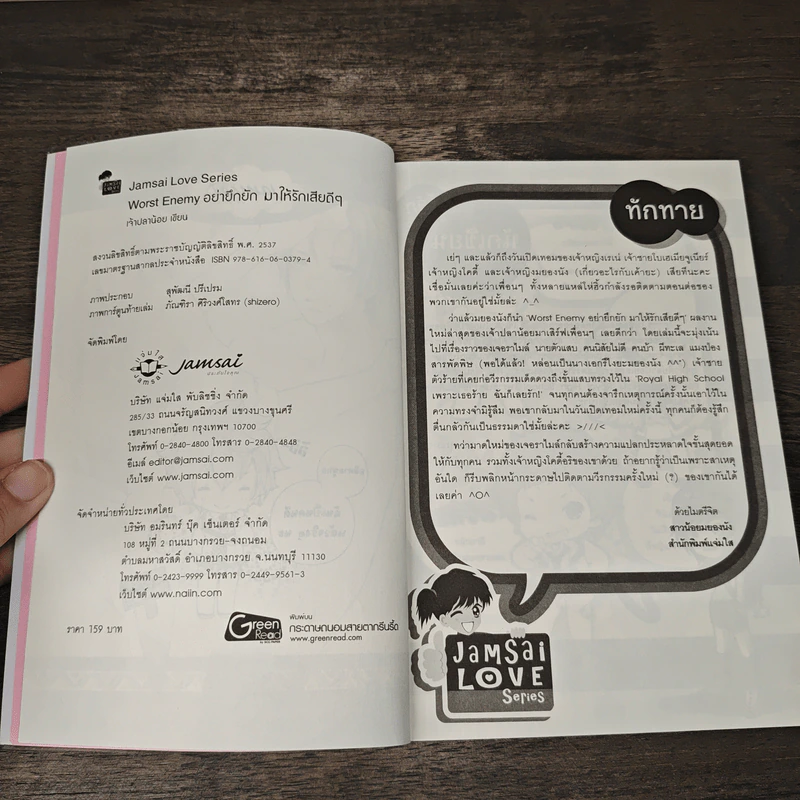 JAMSAI
LOVE
Jamsai Love Series
Worst Enemy อย่ายึกยัก มาให้รักเสียดีๆ
เจ้าปลาน้อย เขียน
สงวนลิขสิทธิ์ตามพระราชบัญญัติลิขสิทธิ์ พ.ศ. 2537
เลขมาตรฐานสากลประจำหนังสือ ISBN 978-616-06-0379-4
ภาพประกอบ สุพัฒณี ปรีเปรม
ภาพการ์ตูนท้ายเล่ม ภัณฑิรา ศิริวงศ์ไสทร (shizero)
จัดพิมพ์โดย
แจ่มใส
Jamsai
Jamsai
บริษัท แจ่มใส พับลิชชิ่ง จำกัด
285/33 ถนนจรัญสนิทวงศ์ แขวงบางขุนศรี
เขตบางกอกน้อย กรุงเทพฯ 10700
โทรศัพท์ 0-2840-4800 โทรสาร 0-2840-4848
อีเมล์ editor@jamsai.com
เว็บไซต์ www.jamsai.com
จัดจำหน่ายทั่วประเทศโดย
บริษัท อมรินทร์ บุ๊ค เซ็นเตอร์ จำกัด
108 หมู่ที่ 2 ถนนบางกรวย-จงถนอม
ตำบลมหาสวัสดิ์ อำเภอบางกรวย จ.นนทบุรี 11130
โทรศัพท์ 0-2423-9999 โทรสาร 0-2449-9561-3
เว็บไซต์ www.naiin.com
ราคา 159 บาท
Green
Read
พิมพ์บน
กระดาษถนอมสายตากรีนรี้ด
www.greenread.com
ทักทาย
เย่ๆ และแล้วก็ถึงวันเปิดเทอมของเจ้าหญิงเรเน่ เจ้าชายไบเฮเมียจูเนียร์
เจ้าหญิงโคดี้ และเจ้าหญิงมยองนัง (เกี่ยวอะไรกับเค้ายะ) เสียทีนะคะ
เชื่อมั่นเลยค่ะว่าเพื่อนๆ ทั้งหลายแหล่ให้อิ๊วกำลังรอติดตามตอนต่อของ
พวกเขากันอยู่ใช่มั้ยล่ะ ^_^
ว่าแล้วมยองนังก็นำ 'Worst Enemy อย่ายึกยัก มาให้รักเสียดีๆ' ผลงาน
ใหม่ล่าสุดของเจ้าปลาน้อยมาเสิร์ฟเพื่อนๆ เลยดีกว่า โดยเล่มนี้จะมุ่งเน้น
ไปที่เรื่องราวของเจอราไมล์ นายตัวแสบ คนนิสัยไม่ดี คนบ้า ผีทะเล แมงป่อง
สารพัดพิษ (พอได้แล้ว! หล่อนเป็นนางเอกรึไงยะมยองนัง ^^") เจ้าชาย
ตัวร้ายที่เคยก่อวีรกรรมเด็ดดวงถึงขั้นแสบทรวงไว้ใน 'Royal High School
เพราะเธอร้าย ฉันก็เลยรัก!' จนทุกคนต้องจารึกเหตุการณ์ครั้งนั้นเอาไว้ใน
ความทรงจำมิรู้ลืม พอเขากลับมาในวันเปิดเทอมใหม่ครั้งนี้ ทุกคนก็ต้องรู้สึก
ตื่นกลัวกันเป็นธรรมดาใช่มั้ยล่ะคะ >///<
ทว่ามาดใหม่ของเจอราไมล์กลับสร้างความแปลกประหลาดใจขั้นสุดยอด
ให้กับทุกคน รวมทั้งเจ้าหญิงโคดี้อริของเขาด้วย ถ้าอยากรู้ว่าเป็นเพราะสาเหตุ
อันใด ก็รีบพลิกหน้ากระดาษไปติดตามวีรกรรมครั้งใหม่ (?) ของเขากันได้
เลยค่า ^O^
ด้วยไมตรีจิต
สาวน้อยมยองนัง
สำนักพิมพ์แจ่มใส
JAMSAI
LOVE
Series